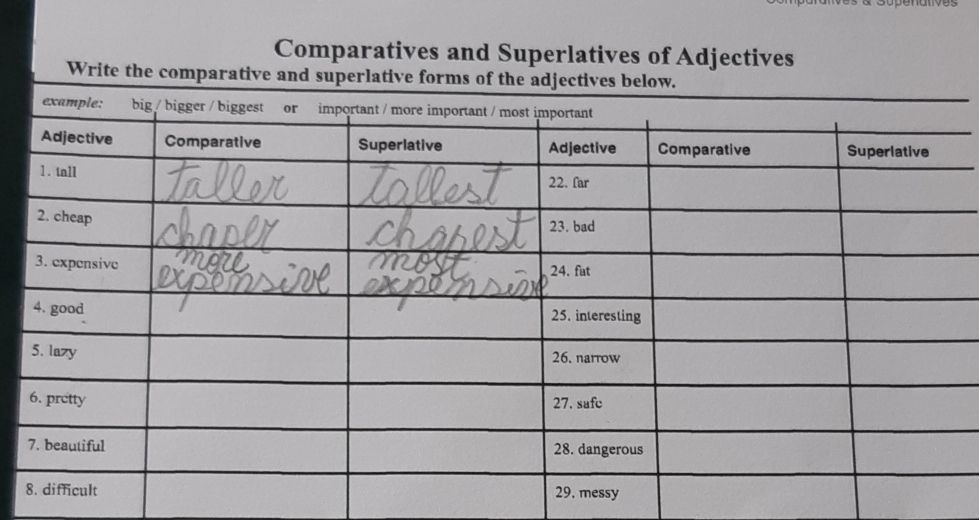 Comparatives & Superlatives
Comparatives and Superlatives of Adjectives
Write the comparative and superlative forms of the adjectives below.
example: big / bigger / biggest or important / more important / most important
Adjective Comparative Superlative Adjective Comparative Superlative
1. tall taller tallest 22. far
2. cheap chaper chapest 23. bad
3. expensive more expensive most expensive 24. fat
4. good 25. interesting
5. lazy 26. narrow
6. pretty 27. safe
7. beautiful 28. dangerous
8. difficult 29. messy